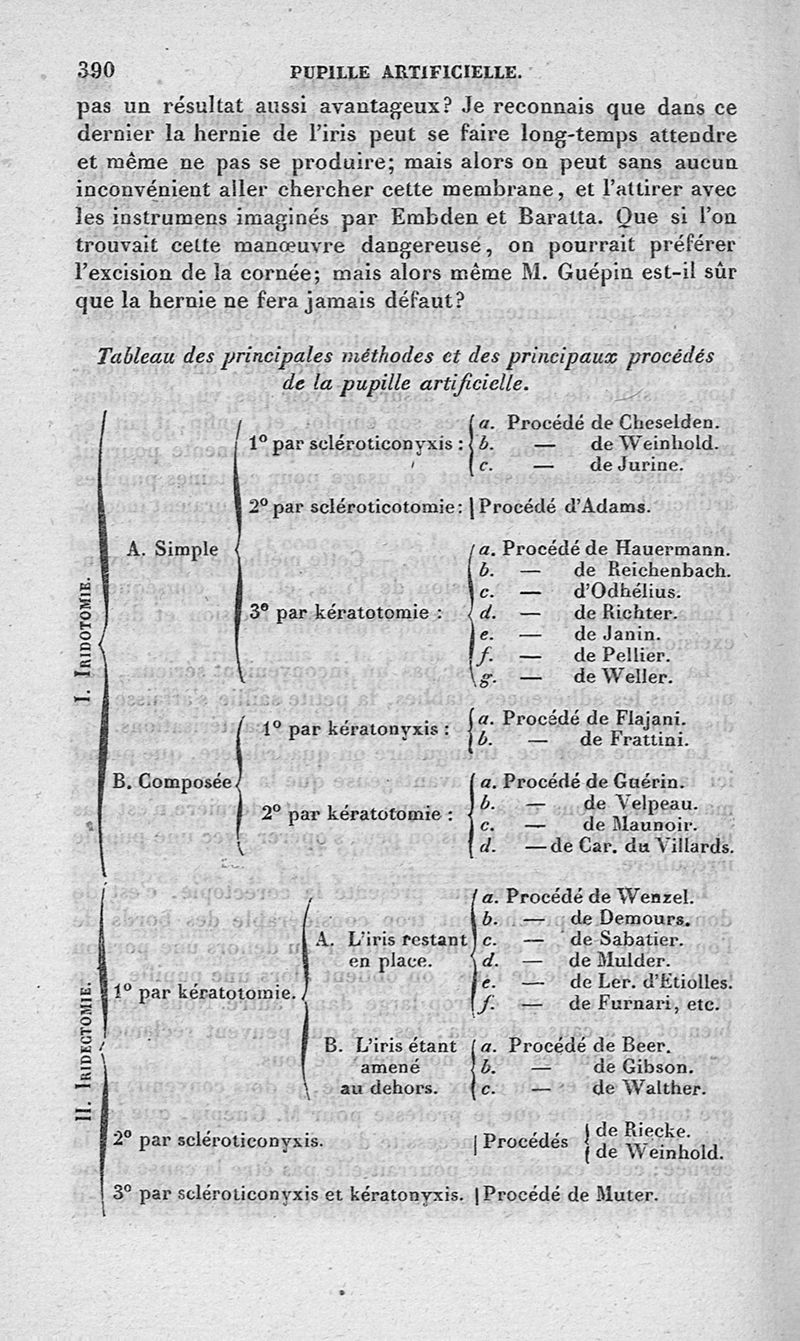 390 PUPILLE ARTIFICIELLE.
pas un résultat aussi avantageux? Je reconnais que dans ce
dernier la hernie de l'iris peut se faire long-temps attendre
et même ne pas se produire; mais alors on peut sans aucun
inconvénient aller chercher cette membrane, et l'attirer avec
les instrumens imaginés par Embden et Baratta. Que si l'on
trouvait cette manœuvre dangereuse, on pourrait préférer
l'excision de la cornée; mais alors même M. Guépin est-il sûr
que la hernie ne fera jamais défaut?
Tableau des principales méthodes et des principaux procédés
de la pupille artificielle.
I. IRIDOTOMIE.
A. Simple
1º par scléroticonyxis :
a. Procédé de Cheselden.
b. — de Weinhold.
c. — de Jurine.
2º par scléroticotomie: | Procédé d'Adams.
3º par kératotomie :
a. Procédé de Hauermann.
b. — de Reichenbach.
c. — d'Odhélius.
d. — de Richter.
e. — de Janin.
f. — de Pellier.
g. — de Weller.
B. Composée
1º par kératonyxis :
a. Procédé de Flajani.
b. — de Frattini.
2º par kératotomie :
a. Procédé de Guérin.
b. — de Velpeau.
c. — de Maunoir.
d. — de Car. du Villards.
II. IRIDECTOMIE.
1º par kératotomie.
A. L'iris restant
en place.
a. Procédé de Wenzel.
b. — de Demours.
c. — de Sabatier.
d. — de Mulder.
e. — de Ler. d'Etiolles.
f. — de Furnari, etc.
B. L'iris étant
amené
au dehors.
a. Procédé de Beer.
b. — de Gibson.
c. — de Walther.
2º par scléroticonyxis. | Procédés
de Riecke.
de Weinhold.
3º par scléroticonyxis et kératonyxis. | Procédé de Muter.